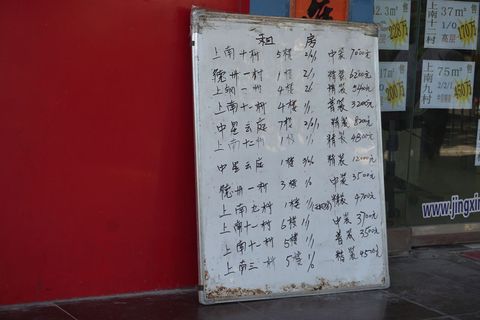 租房
上南十村 5楼 2/1/1 中装 7000元
德州一村 1楼 2/1 精装 6200元
上钢一村 4楼 精装
上南十一村 4楼 普装 3200元
中星云庭 7楼 2/2/1 精装
上南十二村 1楼 精装 4800元
中星云庭 1楼 精装
德州一村 3楼 1/0 中装 3500元
上南九村 1楼 1/1 精装 4700元
上南十一村 6楼 1/1 中装 3700元
上南十一村 5楼 1/1 普装 3500元
上南三村 5楼 1/0 精装 4500元
售
228万
上南十一村 37m² 售
高层 170万
售
208万
上南九村 75m² 售
2/2/1 450万
www.jingxin